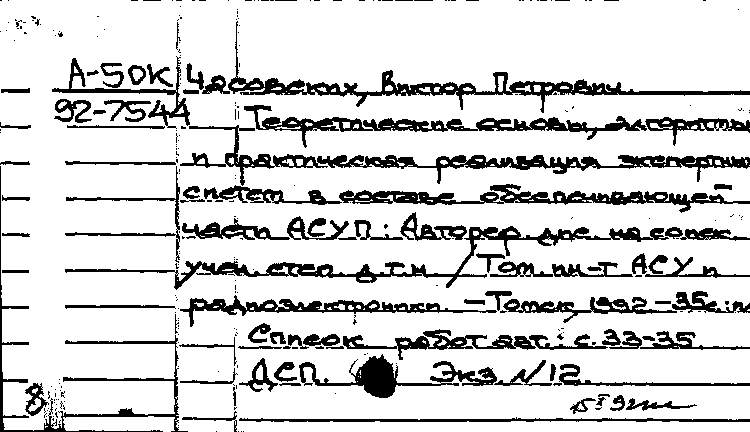 А-50К Часовских, Виктор Петрович.
92-7544 Теоретические основы, алгоритмы
и практическая реализация экспертных
систем в составе обеспечивающей
части АСУП: Автореф. дис. на соиск.
учен. степ. д.т.н. / Том. ин-т АСУ и
радиоэлектроники. – Томск, 1992. – 35с.:ил
Список работ авт.: с. 33-35.
ДСП. Экз. N 12.
8